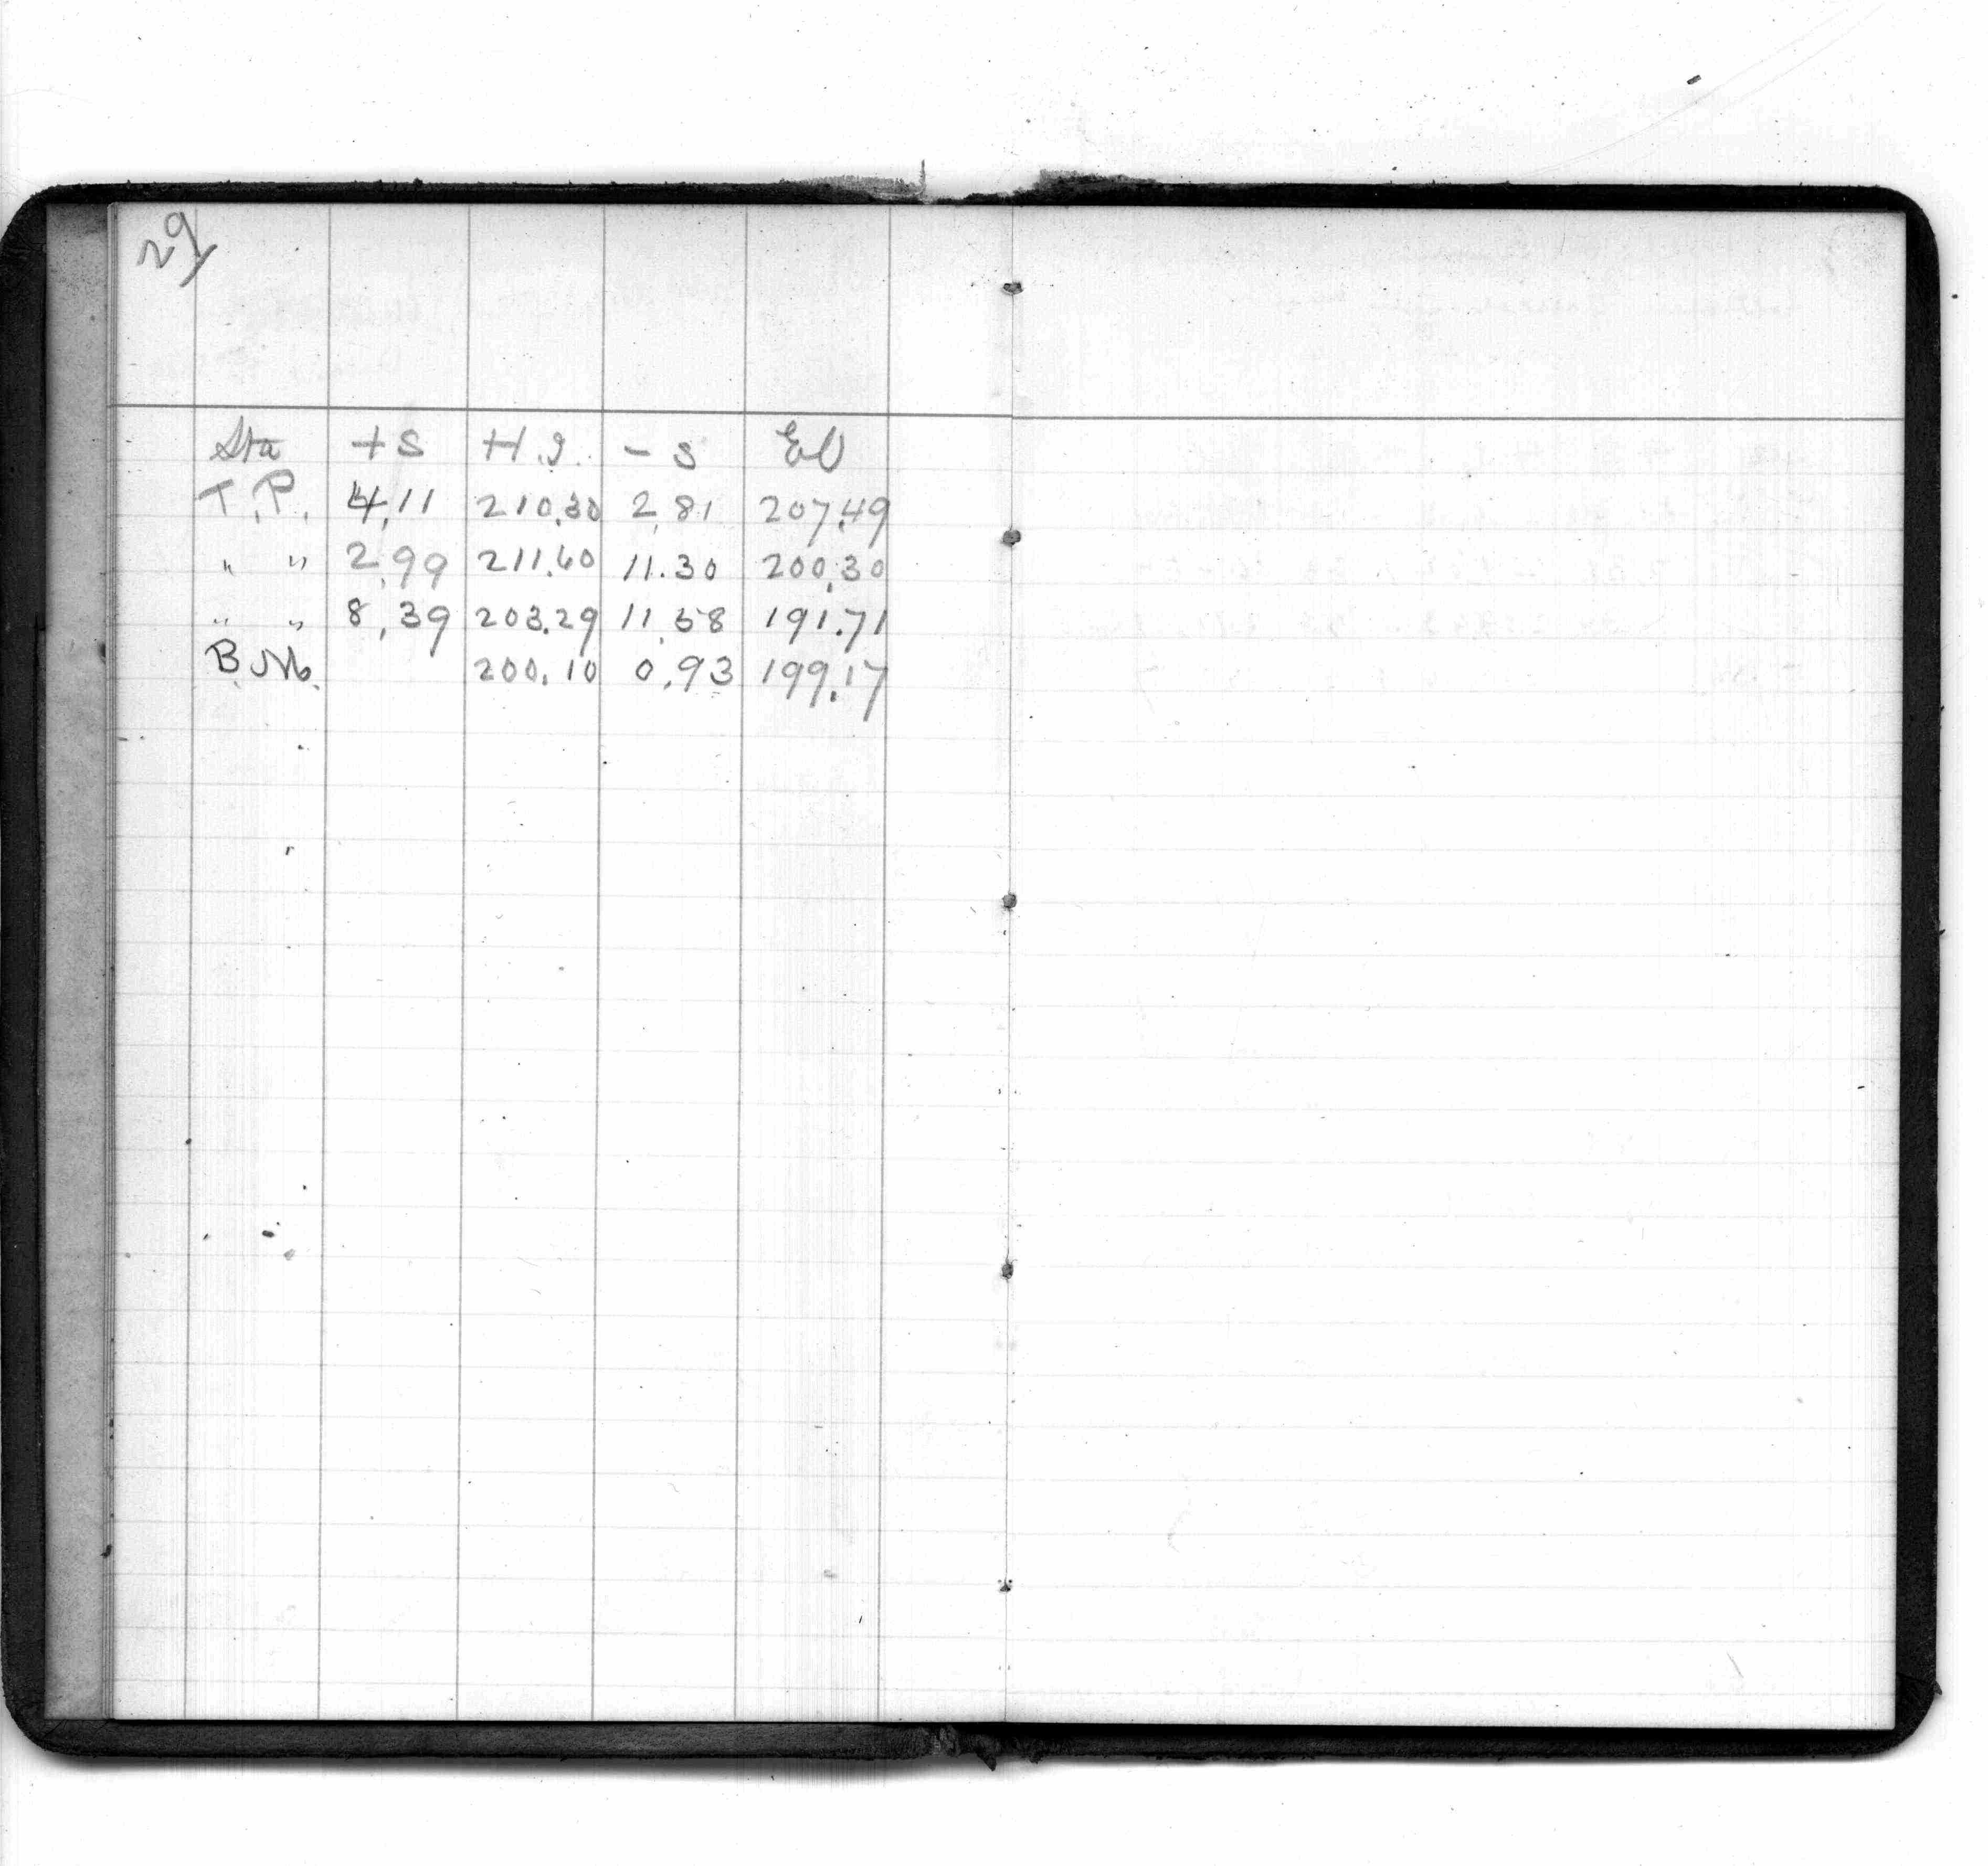 29
Sta +S H.I. -S El
T.P. 4.11 210.30 2.81 207.49
" " 2.99 211.60 11.30 200.30
" " 8.39 203.29 11.58 191.71
B.M. 200.10 0.93 199.17